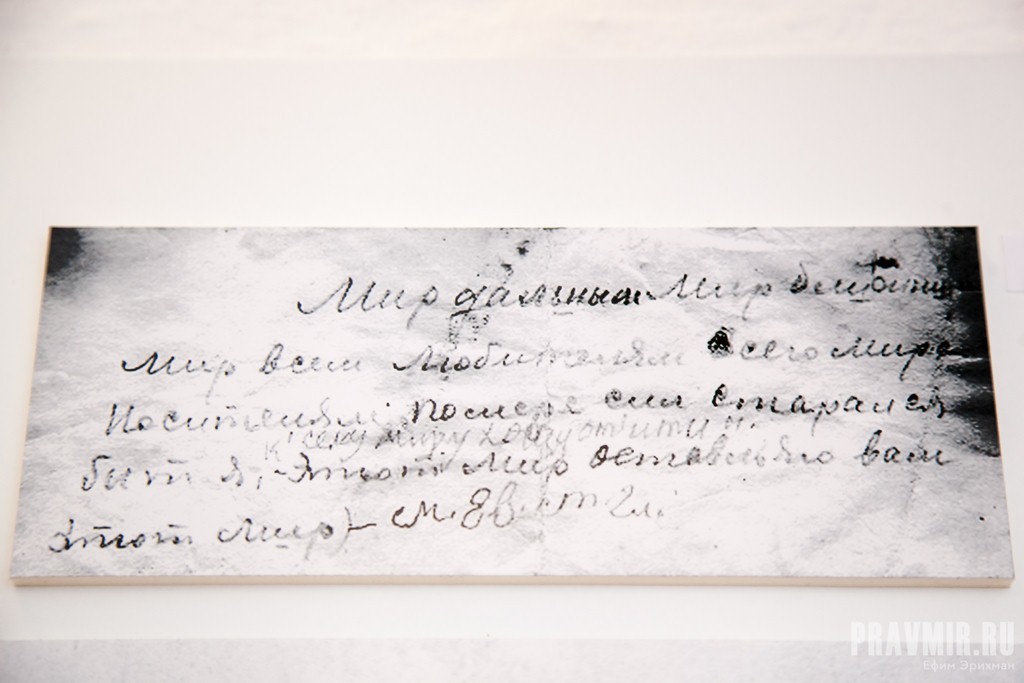 Мир дальным Мир ближним
Мир всем Любителям всего мира
Носителям, По мере сил старался
к сему миру хочу отити и.
быт я, Этот Мир оставляю вам
Этот Мир) –
PRAVMIR.RU
Ефим Эрихман